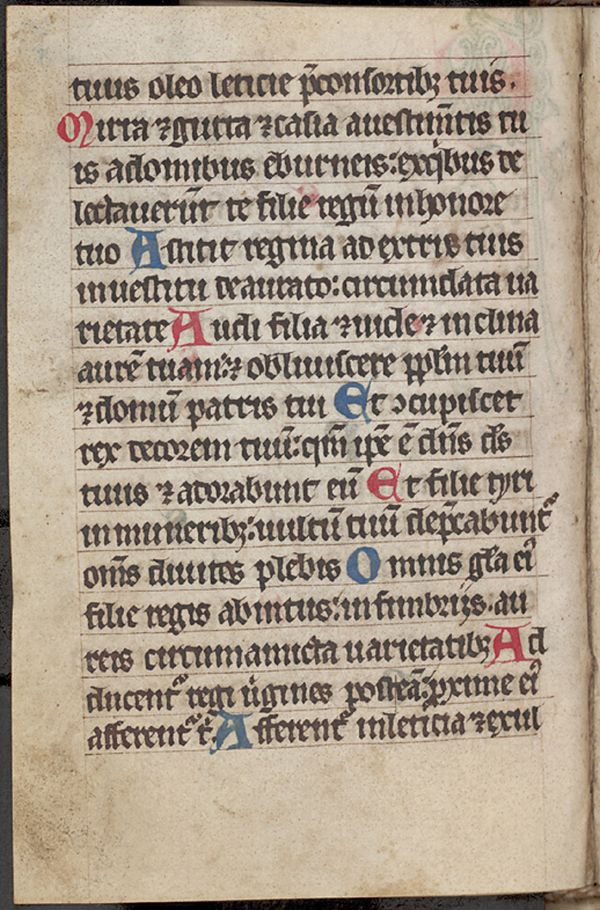 tuus oleo leticie p̄consortibꝫ tuis.
Mirra ⁊ gutta ⁊ casia a uestim̄tis tu
is a domibus eburneis: ex qͥbus de
lectauerūt te filie regū in honore
tuo Astitit regina a dextris tuis
in uestitu deaurato: circumdata ua
rietate Audi filia ⁊ uide ⁊ inclina
aurē tuam: ⁊ obliuiscere pp̄lm tuū
⁊ domū patris tui Et ↄcupiscet
rex decorem tuū: qm̄ ip̄e ē dn̄s ds̄
tuus ⁊ adorabunt eū Et filie tyri
in muneribꝫ: uultū tuū dep̄cabunt᷑
om̄s diuites plebis Omnis gl̄a eiꝰ
filie regis ab intus: in fimbrijs au
reis circumamicta uarietatibꝫ Ad
ducent᷑ regi ūgines post eā: ꝓxime eiꝰ
afferent᷑ t̄. Afferent᷑ in leticia ⁊ exul